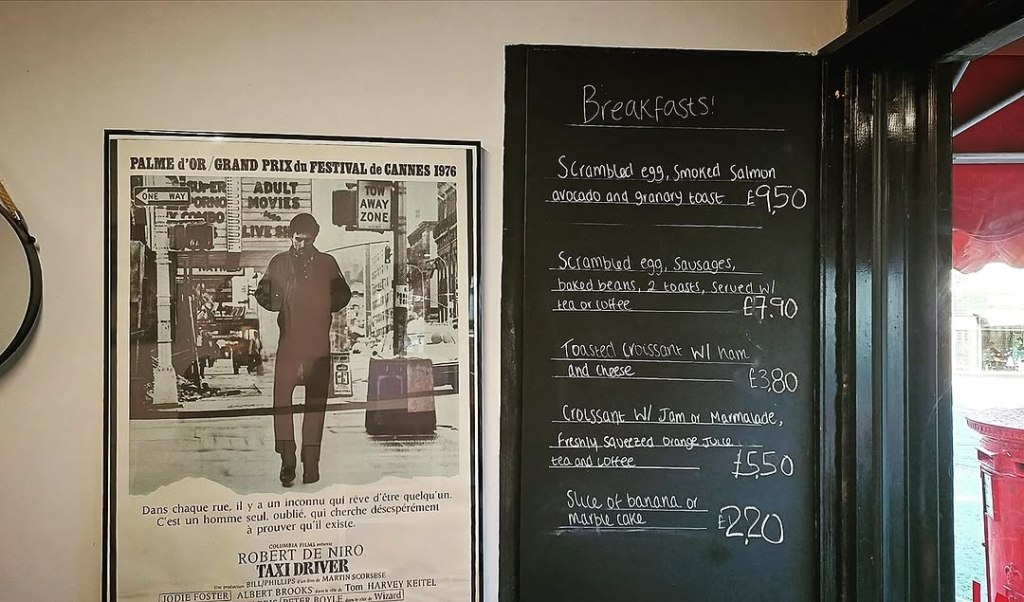 PALME d'OR/GRAND PRIX du FESTIVAL de CANNES 1976
ONE WAY
SUPER
PORNO
COMBO
ADULT
MOVIES
LIVE SH
TOW
AWAY
ZONE
Dans chaque rue, il y a un inconnu qui rêve d'être quelqu'un.
C'est un homme seul, oublié, qui cherche désespérément
à prouver qu'il existe.
COLUMBIA FILMS présente
ROBERT DE NIRO
TAXI DRIVER
Une production BILL/PHILLIPS d'un film de MARTIN SCORSESE
JODIE FOSTER ALBERT BROOKS dans le rôle de Tom HARVEY KEITEL
PETER BOYLE dans le rôle de Wizard
Breakfasts!
Scrambled egg, Smoked Salmon
avocado and granary toast £9,50
Scrambled egg, Sausages,
baked beans, 2 toasts, Served w/
tea or coffee £7.90
Toasted Croissant W/ ham
and cheese £3,80
Croissant W/ Jam or Marmalade,
Freshly Squeezed Orange Juice
tea and coffee £5,50
Slice of banana or
marble cake £2,20